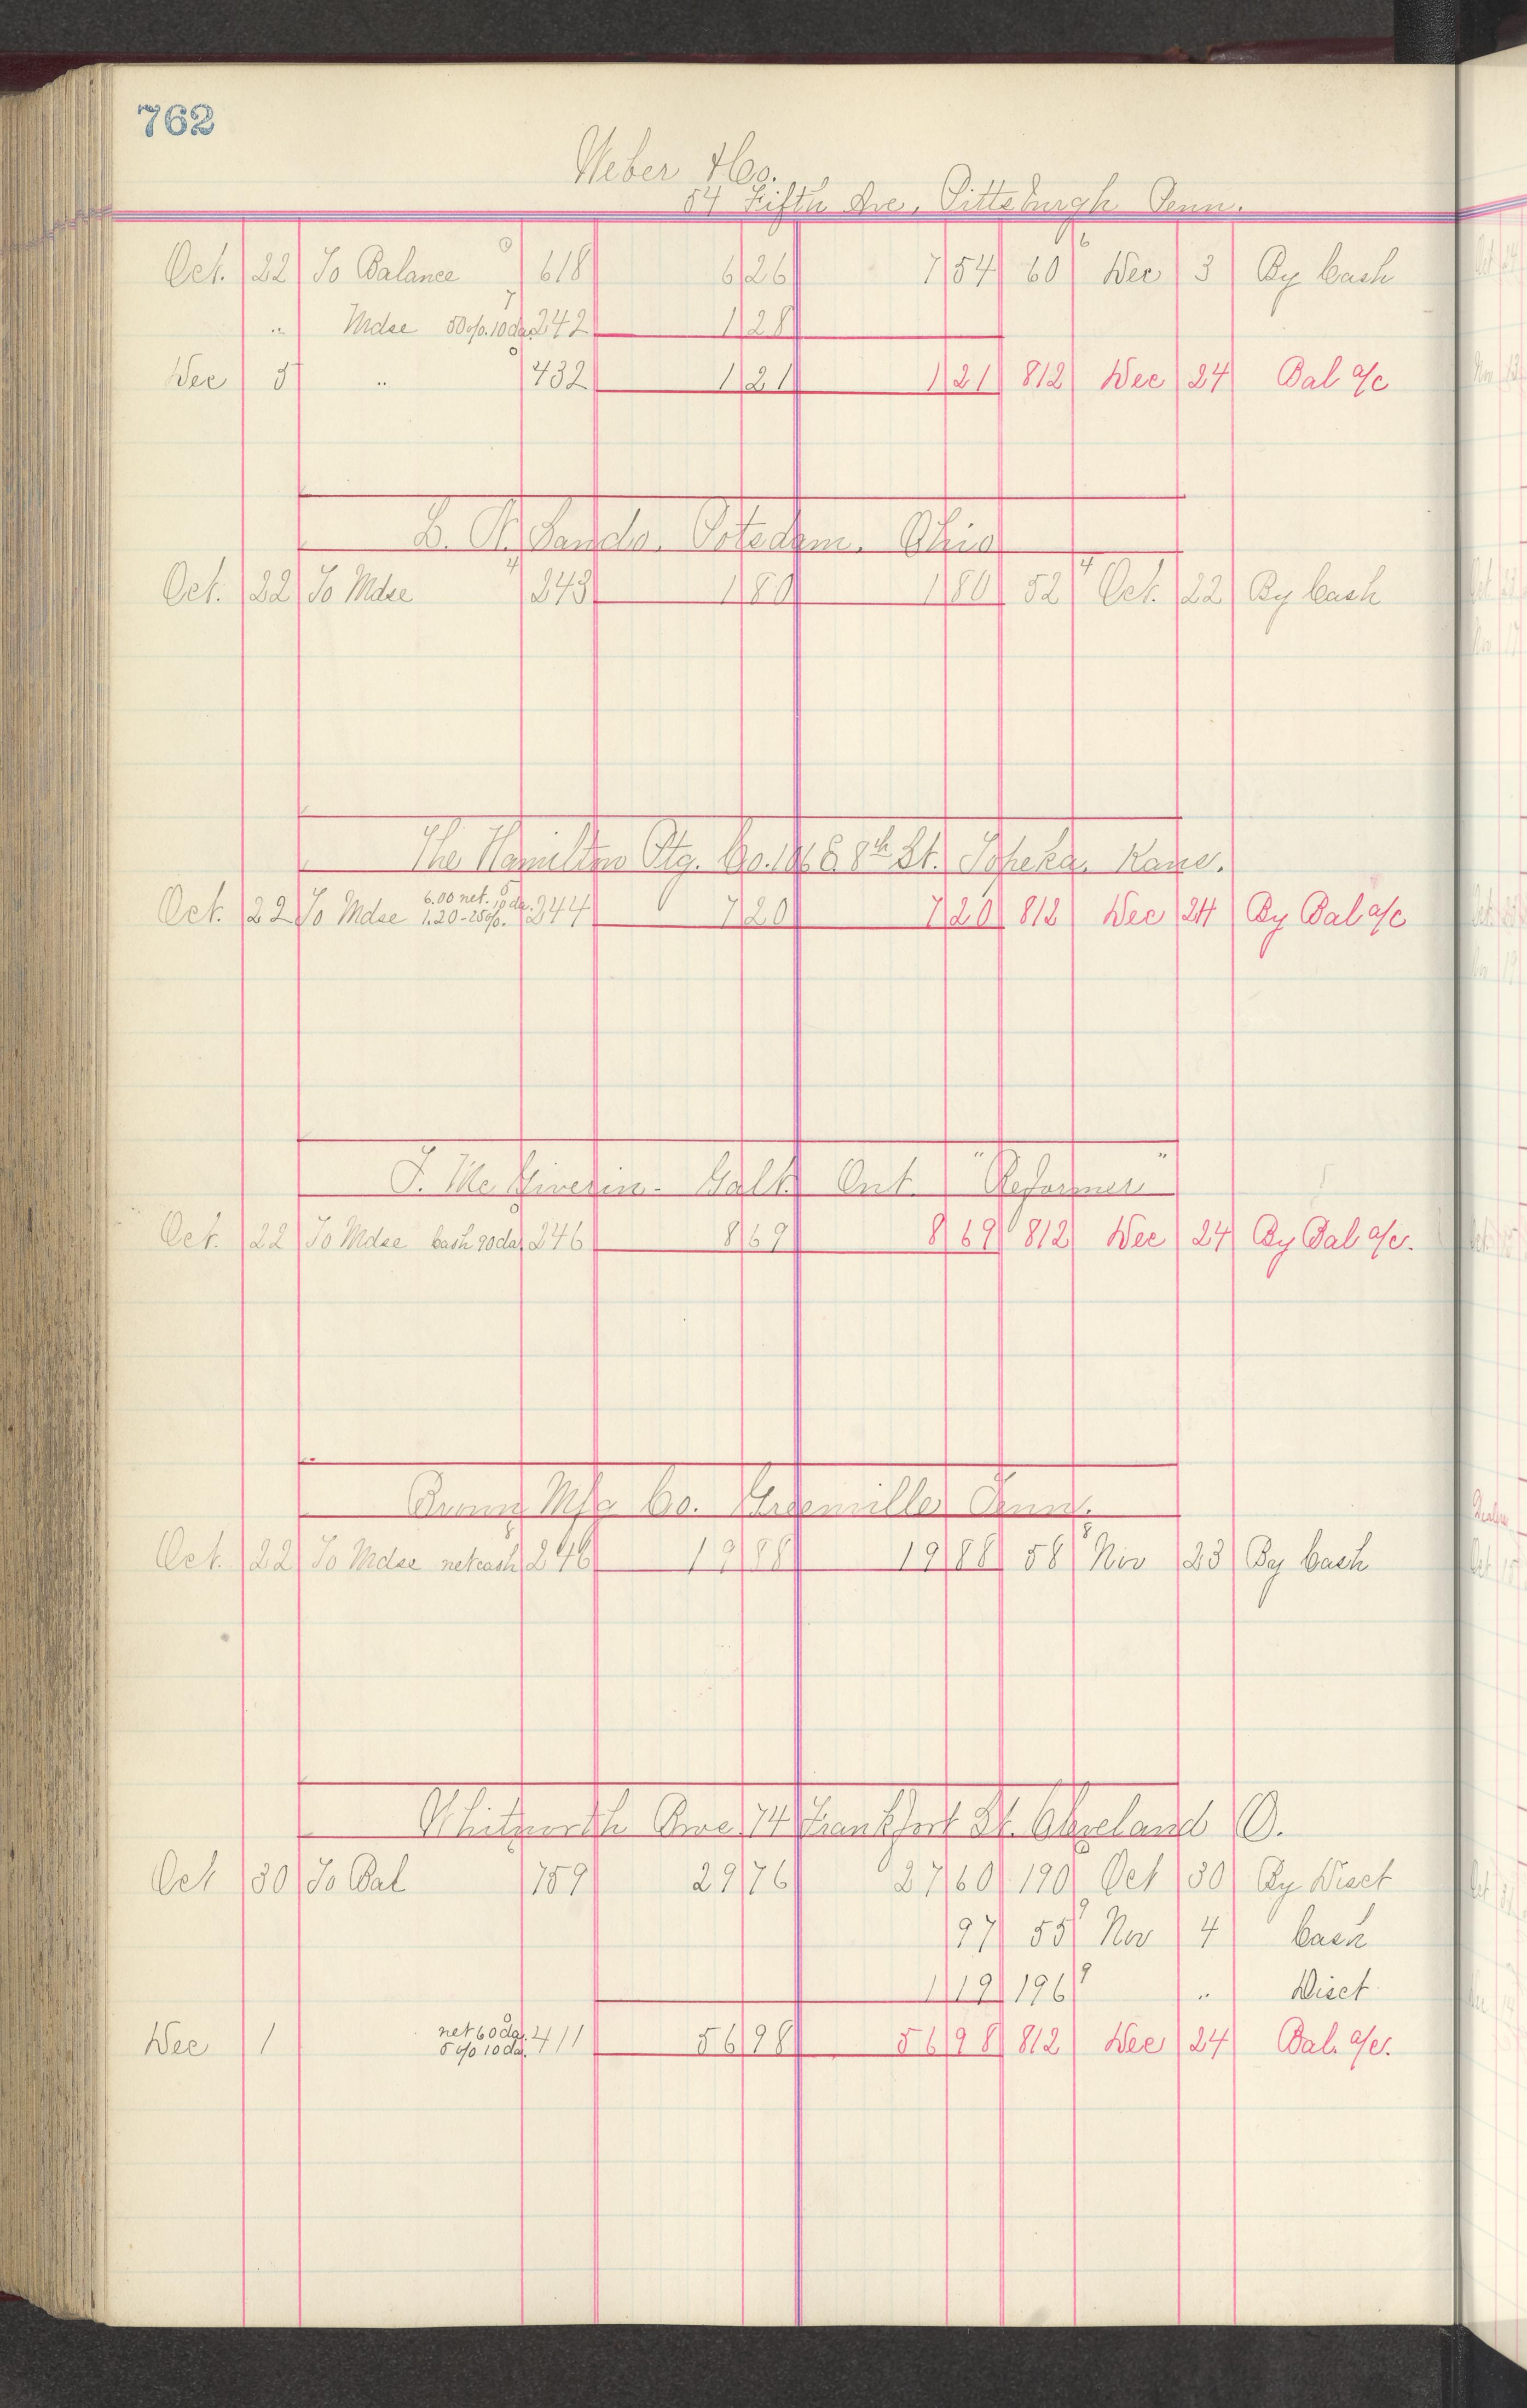 762
Weber & Co.
54 Fifth Ave, Pittsburgh Penn.
Oct. 22 To Balance 0 618 6 26 7 54 60 6 Dec 3 By Cash
" Mdse 50%.10da. 7 242 1 28
Dec 5 " 0 432 1 21 1 21 812 Dec 24 Bal a/c
Potsdam. Ohio
Oct. 22 To Mdse 4 243 1 80 1 80 52 4 Oct. 22 By Cash
The Hamilton Ptg. Co. 106 E. 8th St. Topeka. Kans.
Oct. 22 To Mdse 6.00 net. 10 da. 244 7 20 7 20 812 Dec 24 By Bal a/c
1.20-25%.
J. McGiverin - Galt. Ont. "Reformer"
Oct. 22 To Mdse Cash 90da. 246 8 69 8 69 812 Dec 24 By Bal a/c.
Brown Mfg Co. Greenville Tenn.
Oct. 22 To Mdse net cash 8 246 19 88 19 88 58 8 Nov 23 By Cash
Whitworth Bros. 74 Frankfort St. Cleveland O.
Oct 30 To Bal 759 29 76 27 60 190 Oct 30 By Disct
97 55 9 Nov 4 Cash
1 19 196 9 " Disct
Dec 1 net 60 da. 0 411 56 98 56 98 812 Dec 24 Bal. a/c.
5% 10 da.